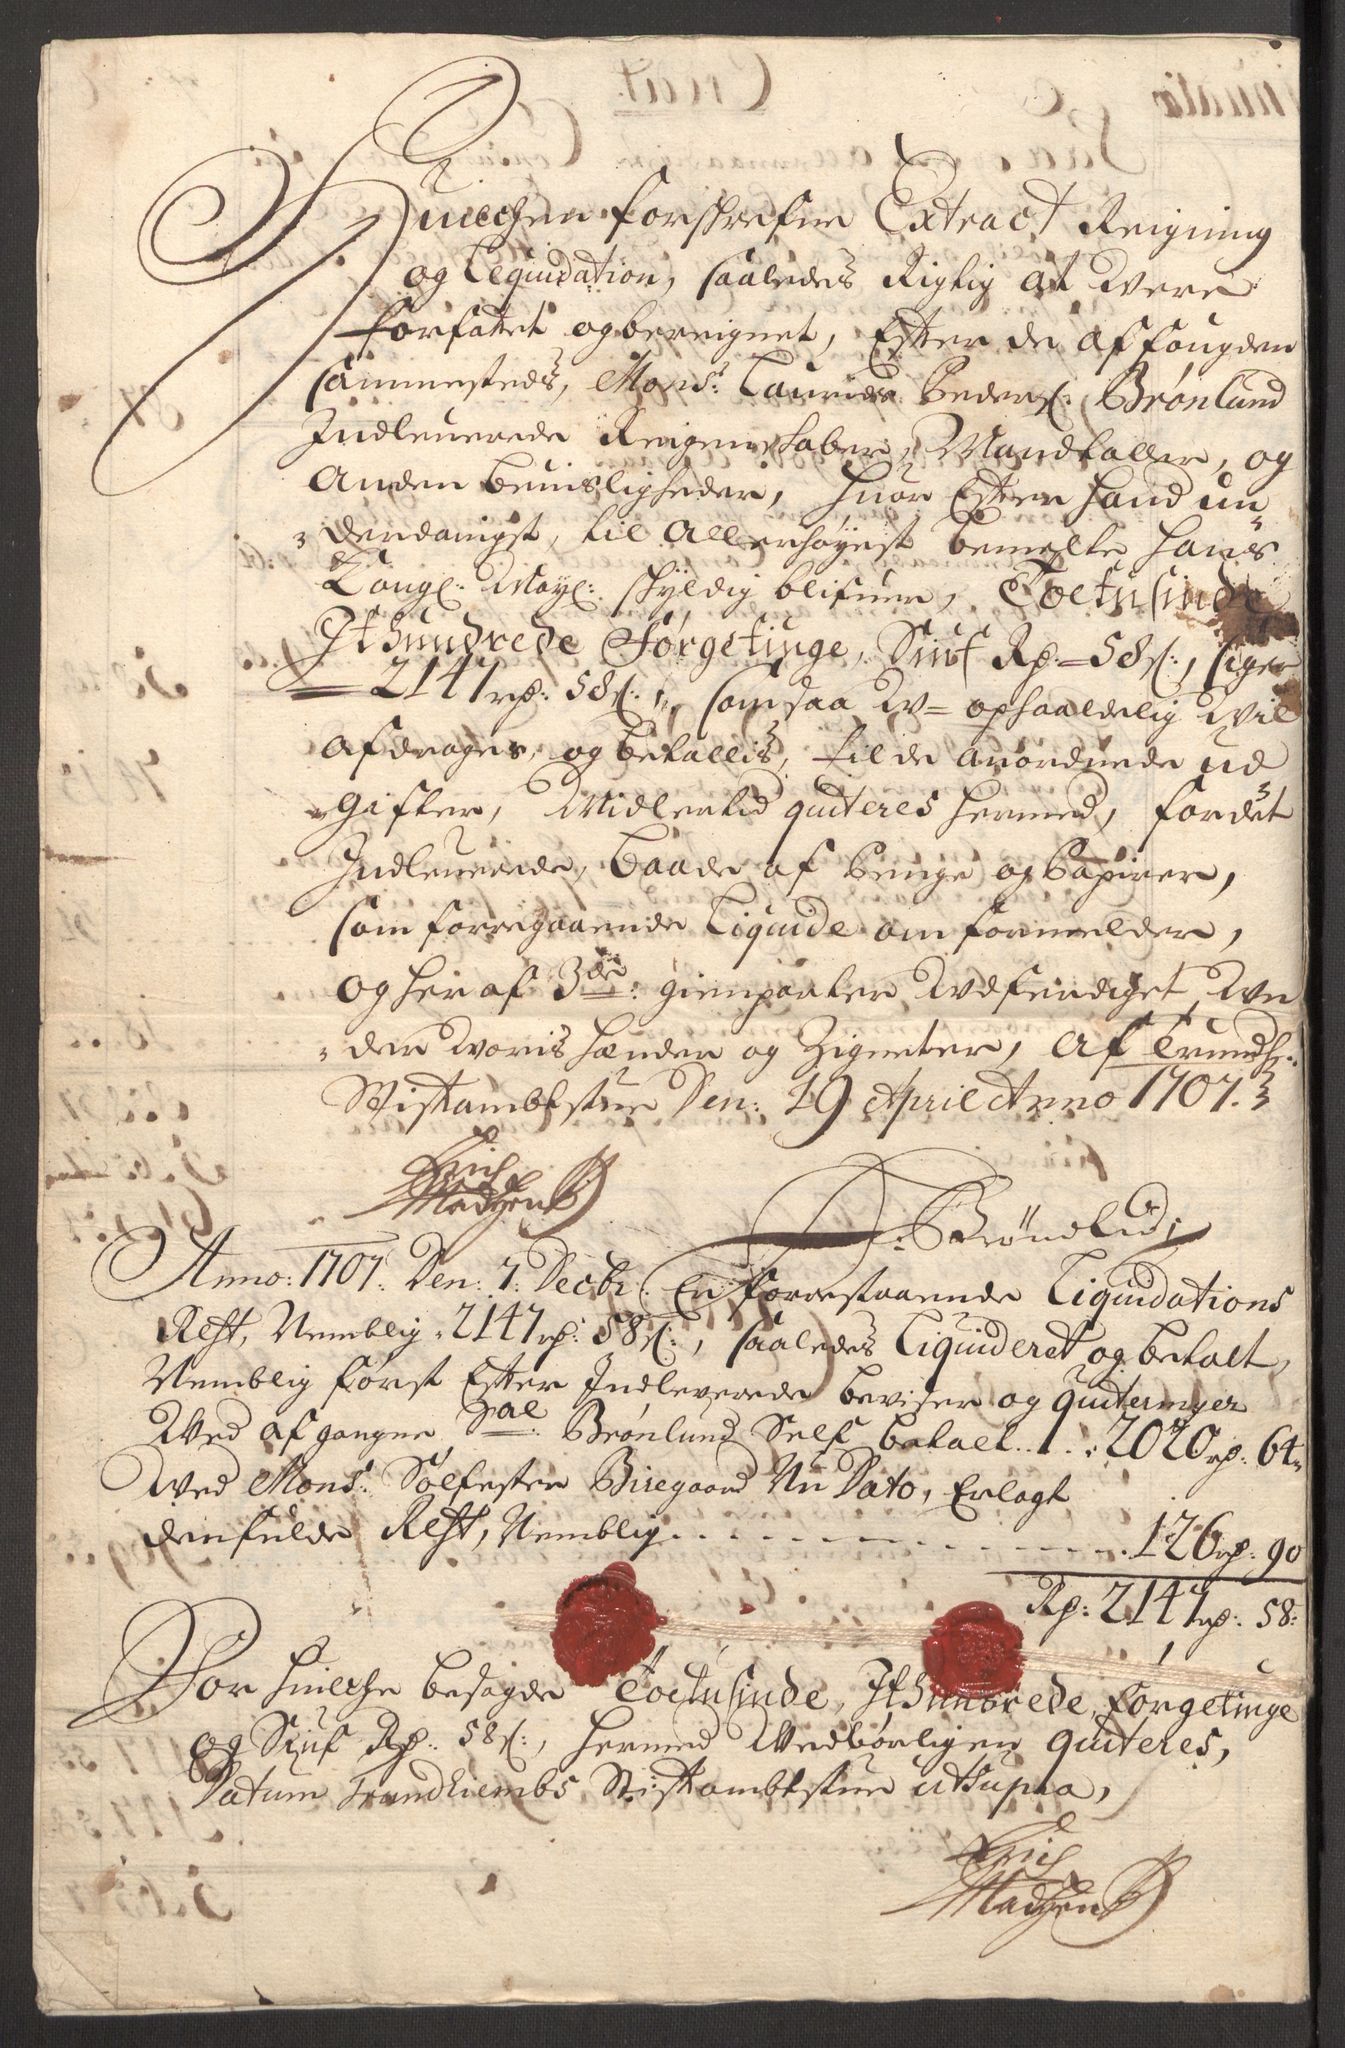 Huilchen forschrefne Extract Reigning
og Leqvidation, saaledes Rigtig at were
forfattet og bereignet, Efter de af fougden
sammesteds, Mons: Laurids Peders: Brønlund
Indleuerede Reigenschaber, Mandtaller, og
Anden beuisligheder, huor Efter hand un
„derdanigst, til Allerhøyest bemelte hans
Kongl: Mayt: schyldig blifuer, Toetusinde
It hundrede Førgetiuge, Siuf Rp: 58 s:, siger
2147 rp: 58 s:, som saa W=ophaaldelig Wil
afdrages, og betallis, til de anordnede ud
„gifter, Midlertid quiteres hermed, for det
Indleuerede, baade af Penge og Papirer,
som forregaaende Liquide om formelder,
og her af 3de: gienparter Udferdiget, Un
„der Woris hænder og Zigneter, Af Trundh:
Stiftambtstue Den: 19 April Anno 1707.
Erich
Madtzen
Brøndlud
Anno: 1707. Den: 7. Decbr: Er forrestaaende Liqvidations
Rest, Nemblig 2147 rp: 58 s:, saaledes Liquideret og betalt,
Nemblig først Efter Indleverede beviser og quiteringer
Wed afgangne Sal: Brønlund Self betalt . . 2020 rp: 64
Wed Mons: Sølfester Biregaard Nu Dato, Erlagt
den fulde Rest, Nemblig . . . . . . . . . 126 rp: 90
Rp: 2147 rp: 58:
For huilche besagde Toetusinde, It hundrede, førgetiuge
og Siuf Rp: 58 s:, hermed Wedbørligen quiteres,
Datum Trundhiembs Stiftambtstue ut supra,
Erich
Madtzen